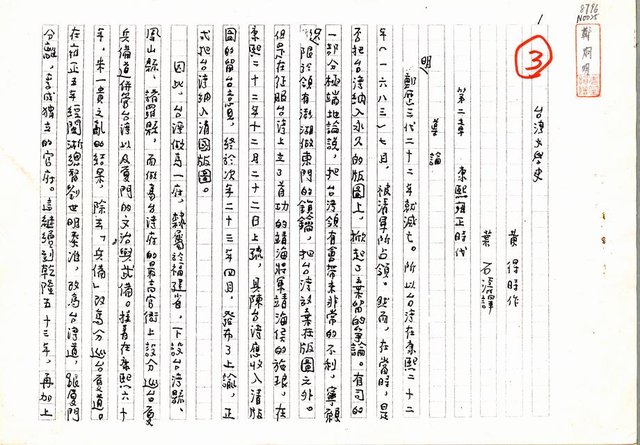 8796
N0025
1
③
台灣文學史
黃得時作
葉石濤譯
第二章 康熙雍正時代
導論
明鄭歷三代二十二年就滅亡。所以台湾在康熙二十二
年(一六八三)七月,被清軍所占領。然而,在當時,是
否把台湾納入永久的版圖上,掀起了棄留的爭論。有司的
一部分極端地論說,把台湾領有會帶來非常的不利,寧願
限於領有澎湖做東門的鎖鑰,把台湾放棄在版圖之外。
但是在征服台湾上立了首功的靖海將軍靖海侯的施琅,在
康熙二十二年十二月二十二日上疏,具陳台湾應收入清版
圖的留台意見,終於次年二十三年四月,發布了上諭,正
式把台湾納入清國版圖。
因此,台湾做為一府,隸屬於福建省,下設台湾縣、
鳳山縣、諸羅縣,而做為台湾府的最高官衙上設分巡台廈
兵備道併管台湾以及廈門的文治與武備。接着在康熙六十
年,朱一貴之亂的結果,除去「兵備」改為分巡台廈道。
在雍正五年經閩浙總督劉世明奏准,改為台湾道,跟廈門
分離,變成獨立的官府。這繼續到乾隆五十三年,再加上